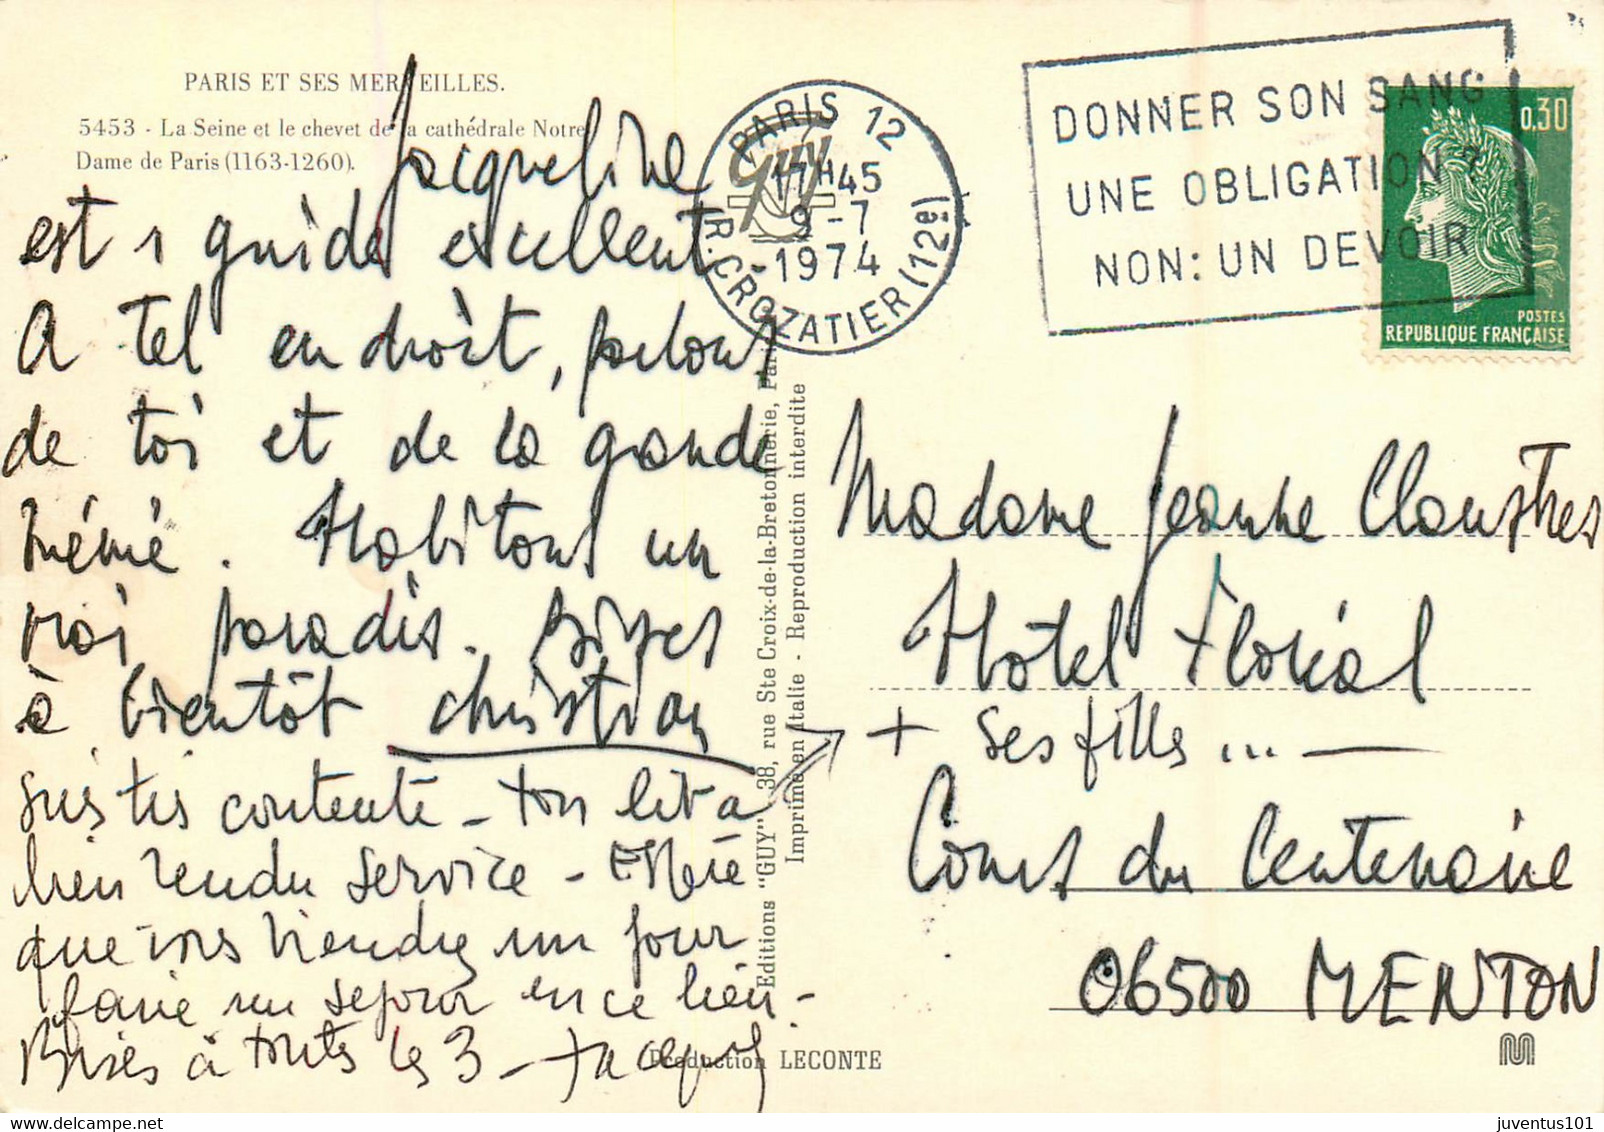 PARIS ET SES MERVEILLES.
5453 - La Seine et le chevet de la cathédrale Notre
Dame de Paris (1163-1260).
Jacqueline
est 1 guide excellent
A tel endroit, parlons
de toi et de la grande
mémé. Habitons un
vrai paradis. Bises
à bientôt Christian
suis très contente - ton lit a
bien rendu service - Espère
que vous viendrez un jour
faire un séjour en ce lieu -
Bises à toutes les 3 - Jacquy
Production LECONTE
Editions "GUY" 38, rue Ste Croix-de-la-Bretonnerie, Paris
Imprimé en Italie - Reproduction interdite
Guy
PARIS 12
17H45
9-7
1974
R. CROZATIER (12e)
DONNER SON SANG
UNE OBLIGATION ?
NON: UN DEVOIR
0,30
POSTES
REPUBLIQUE FRANÇAISE
Madame Jeanne Claustres
Hotel Floréal
+ ses filles ... —
Cours du Centenaire
06500 MENTON
M
juventus101